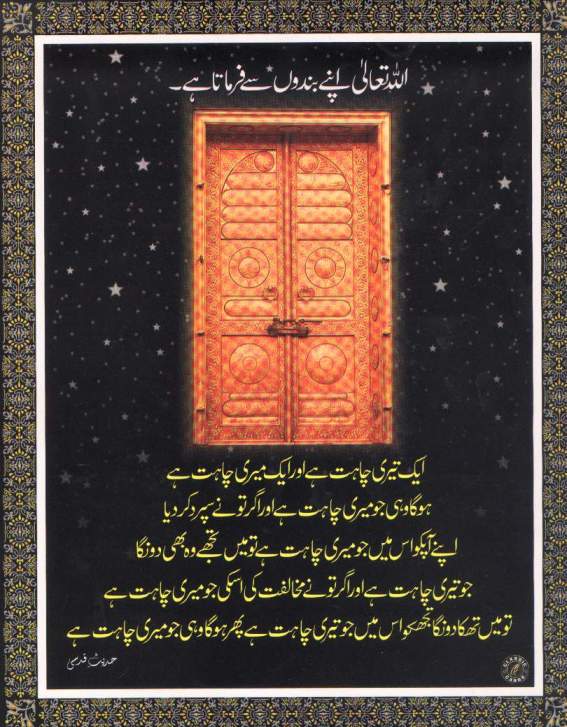 اللہ تعالیٰ اپنے بندوں سے فرماتا ہے۔
ایک تیری چاہت ہے اور ایک میری چاہت ہے
ہوگا وہی جو میری چاہت ہے اور اگر تو نے سپرد کر دیا
اپنے آپکو اس میں جو میری چاہت ہے تو میں تجھے وہ بھی دونگا
جو تیری چاہت ہے اور اگر تو نے مخالفت کی اسکی جو میری چاہت ہے
تو میں تھکا دونگا تجھکو اس میں جو تیری چاہت ہے پھر ہوگا وہی جو میری چاہت ہے
حدیث قدسی